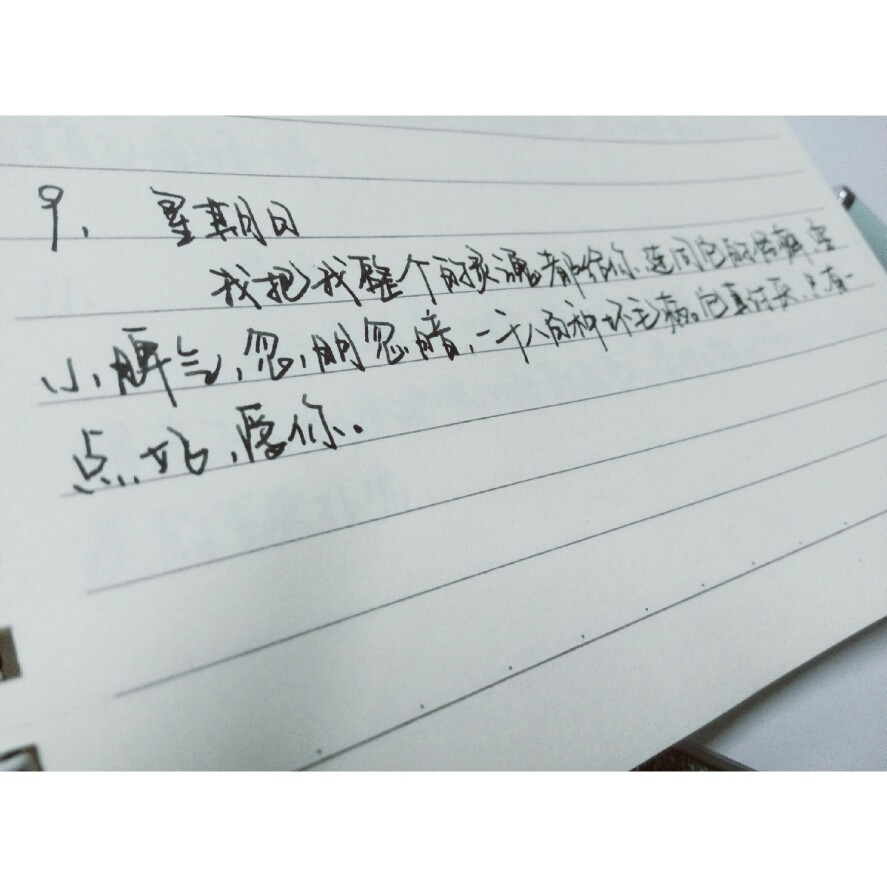 9. 星期日
我把我整个的灵魂都给你,连同它的怪癖,耍
小脾气,忽明忽暗,一千八百种坏毛病。它真讨厌,只有一
点好,爱你。